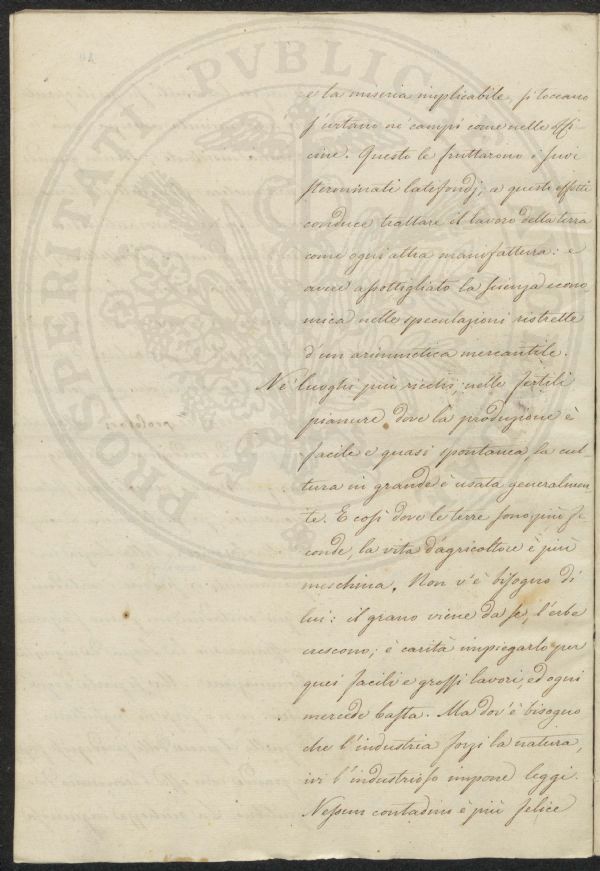 PROSPERITATI PVBLICAE
e la miseria implicabile si toccano
s'urtano ne' campi come nelle offi-
cine. Questo le fruttarono i suoi
sterminati latifondj; a questi effetti
conduce trattare il lavoro della terra
come ogni altra manifattura: e
avere assottigliato la scienza econo
mica nelle speculazioni ristrette
d'un arimmetica mercantile.
Ne' luoghi più ricchi, nelle fertili
pianure dove la produzione è
facile e quasi spontanea, la cul
tura in grande è usata generalmen
te. E così dove le terre sono più fe
conde, la vita d'agricoltore è più
meschina. Non v'è bisogno di
lui: il grano viene da se, l'erbe
crescono; è carità impiegarlo per
quei facili e grossi lavori, ed ogni
mercede basta. Ma dov'è bisogno
che l'industria forzi la natura,
ivi l'industrioso impone leggi.
Nessun contadino è più felice